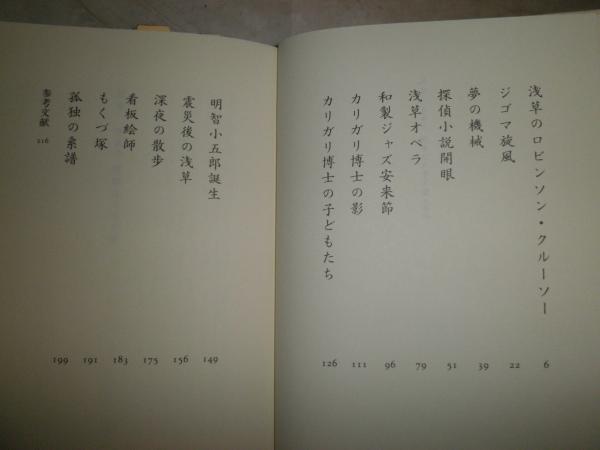 浅草のロビンソン・クルーソー 6
ジゴマ旋風 22
夢の機械 39
探偵小説開眼 51
浅草オペラ 79
和製ジャズ安来節 96
カリガリ博士の影 111
カリガリ博士の子どもたち 126
明智小五郎誕生 149
震災後の浅草 156
深夜の散歩 175
看板絵師 183
もくづ塚 191
孤独の系譜 199
参考文献 216